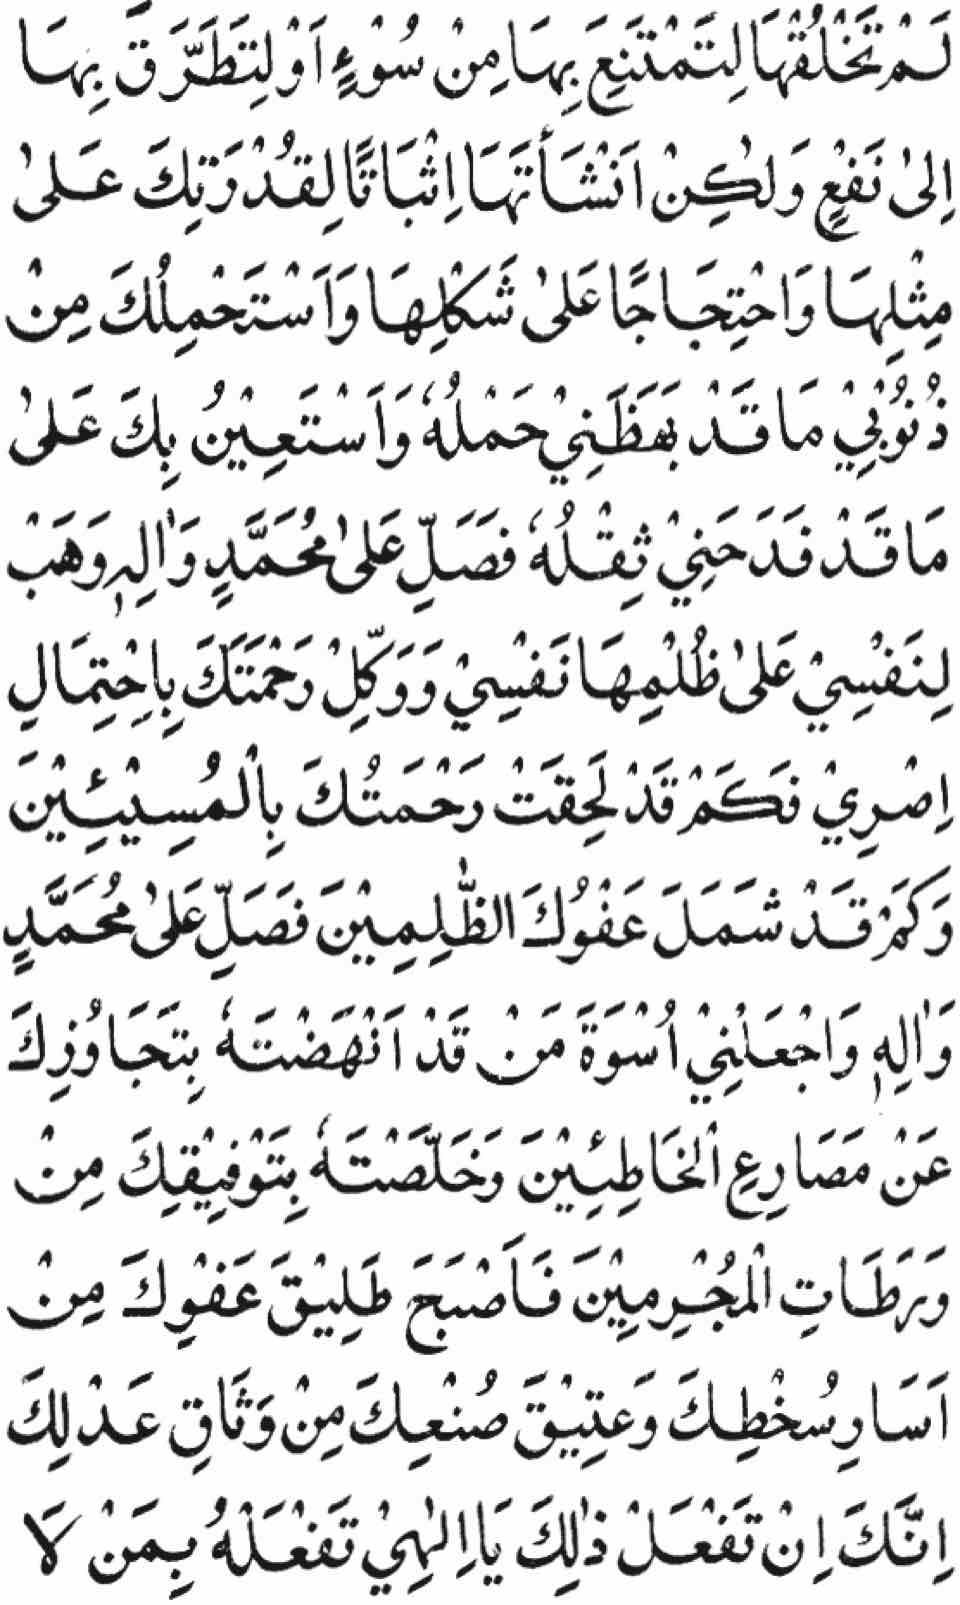 لَمْ تَخْلُقْهَا لِتَمْتَنِعَ بِهَا مِنْ سُوْءٍ اَوْ لِتَطَرَّقَ بِهَا
اِلىٰ نَفْعٍ وَلٰكِنْ اَنْشَأْتَهَا اِثْبَاتًا لِقُدْرَتِكَ عَلىٰ
مِثْلِهَا وَاحْتِجَاجًا عَلىٰ شَكْلِهَا وَاَسْتَحْمِلُكَ مِنْ
ذُنُوْبِيْ مَا قَدْ بَهَظَنِيْ حَمْلُهٗ وَاَسْتَعِيْنُ بِكَ عَلىٰ
مَا قَدْ فَدَحَنِيْ ثِقْلُهٗ فَصَلِّ عَلىٰ مُحَمَّدٍ وَاٰلِهٖ وَهَبْ
لِنَفْسِيْ عَلىٰ ظُلْمِهَا نَفْسِيْ وَوَكِّلْ رَحْمَتَكَ بِاِحْتِمَالِ
اِصْرِيْ فَكَمْ قَدْ لَحِقَتْ رَحْمَتُكَ بِالْمُسِيْئِيْنَ
وَكَمْ قَدْ شَمَلَ عَفْوُكَ الظّٰلِمِيْنَ فَصَلِّ عَلىٰ مُحَمَّدٍ
وَاٰلِهٖ وَاجْعَلْنِيْ اُسْوَةَ مَنْ قَدْ اَنْهَضْتَهٗ بِتَجَاوُزِكَ
عَنْ مَصَارِعِ الْخَاطِئِيْنَ وَخَلَّصْتَهٗ بِتَوْفِيْقِكَ مِنْ
وَرَطَاتِ الْمُجْرِمِيْنَ فَاَصْبَحَ طَلِيْقَ عَفْوِكَ مِنْ
اَسَارِ سُخْطِكَ وَعَتِيْقَ صُنْعِكَ مِنْ وَثَاقِ عَدْلِكَ
اِنَّكَ اِنْ تَفْعَلْ ذٰلِكَ يَا اِلٰهِيْ تَفْعَلْهُ بِمَنْ لَا